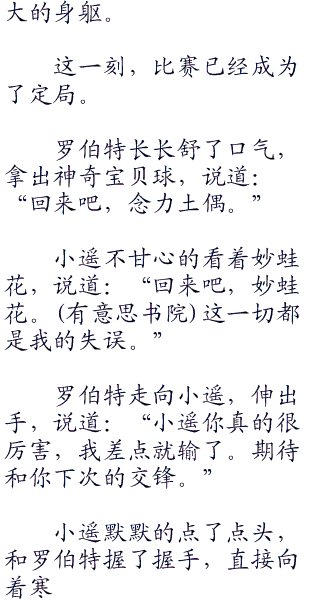 大的身躯。
这一刻，比赛已经成为
了定局。
罗伯特长长舒了口气，
拿出神奇宝贝球，说道：
“回来吧，念力土偶。”
小遥不甘心的看着妙蛙
花，说道：“回来吧，妙蛙
花。(有意思书院)这一切都
是我的失误。”
罗伯特走向小遥，伸出
手，说道：“小遥你真的很
厉害，我差点就输了。期待
和你下次的交锋。”
小遥默默的点了点头，
和罗伯特握了握手，直接向
着寒